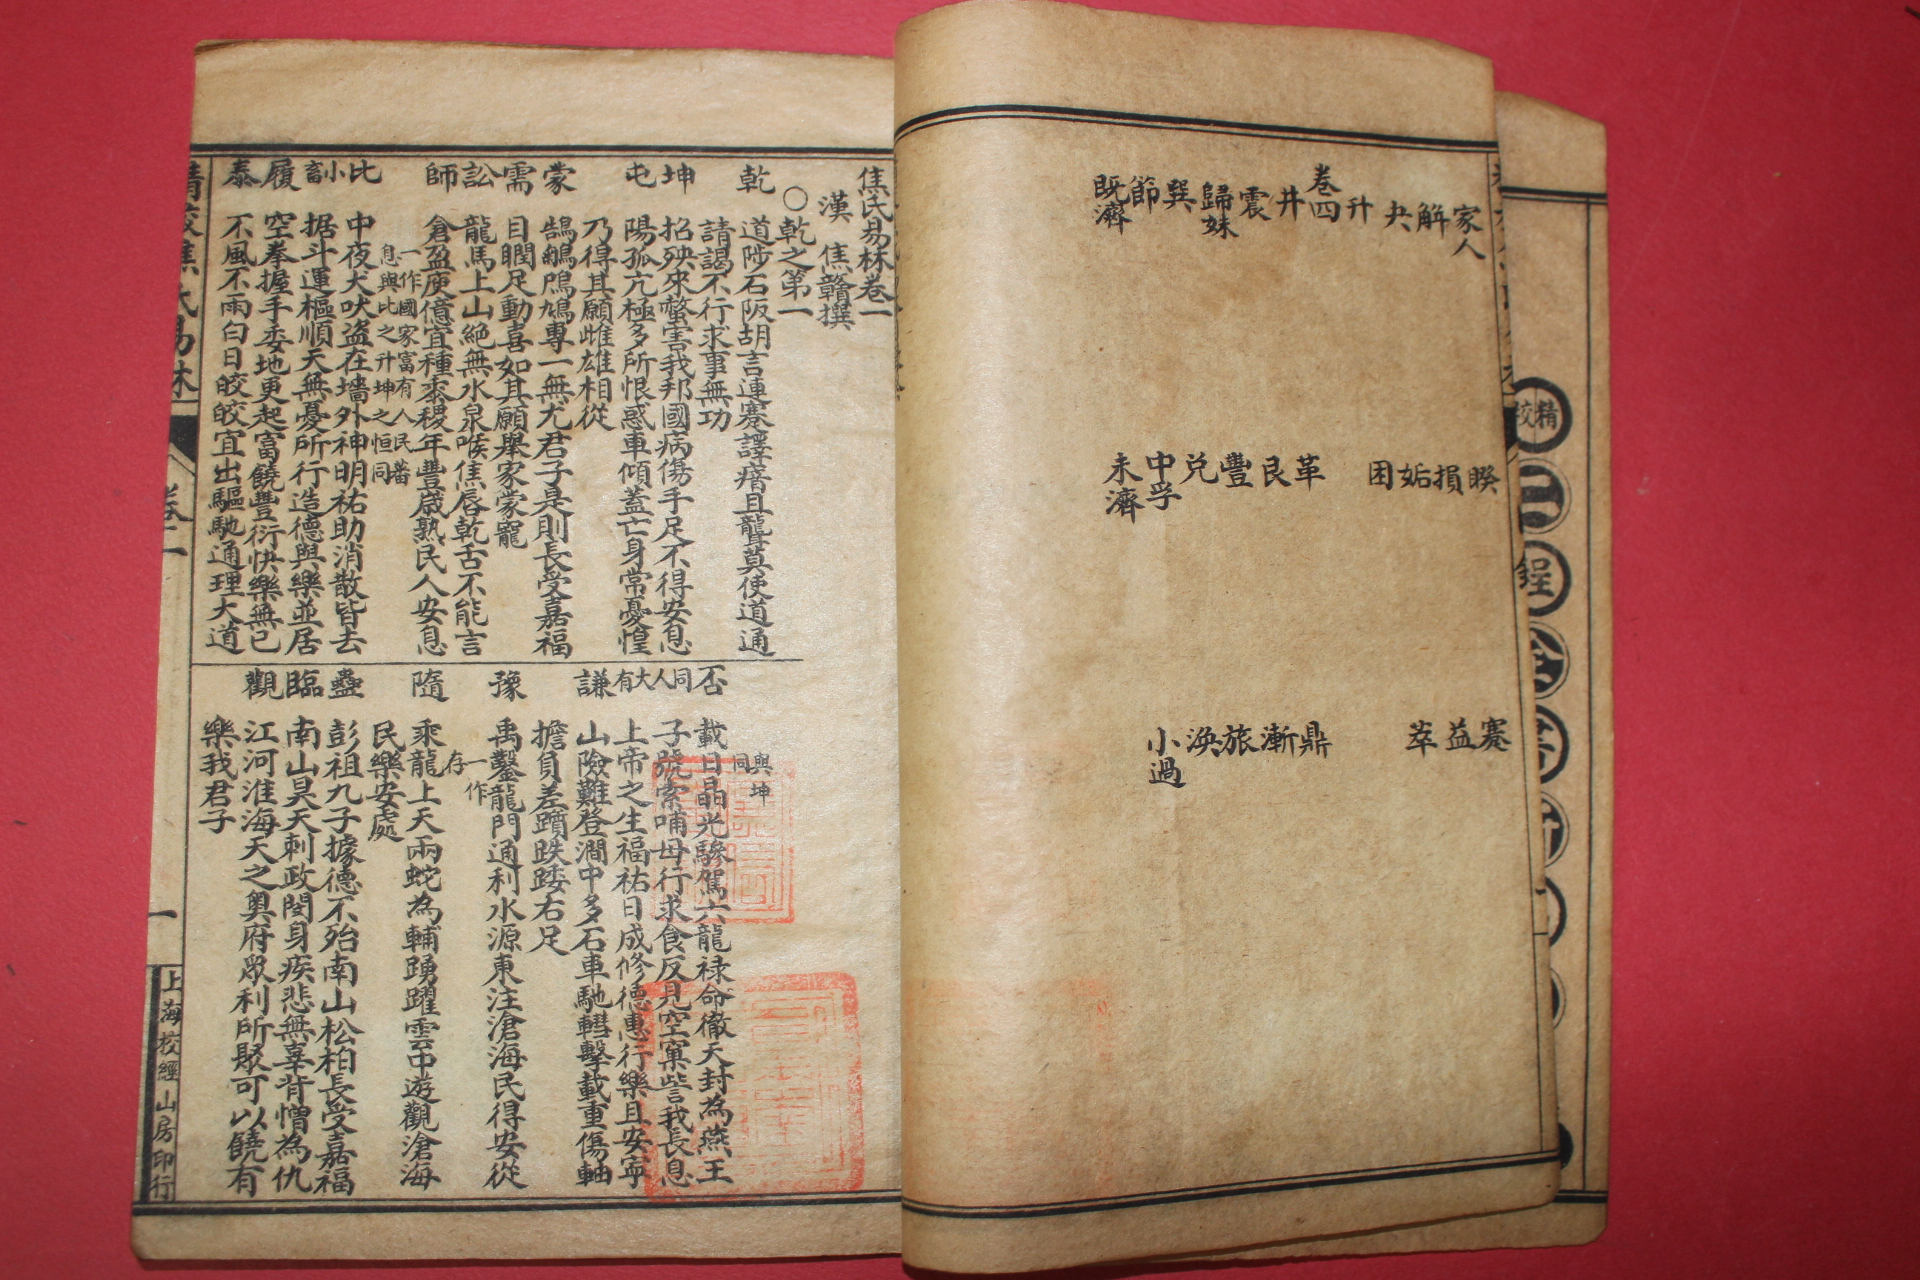 家人 睽 蹇
解 損 益
夬 姤 萃
升 困
卷四
井 革 鼎
震 艮 漸
歸妹 豐 旅
巽 兌 渙
節 中孚 小過
既濟 未濟
焦氏易林卷一
漢 焦贛撰
○乾之第一
乾 道陟石阪胡言連蹇譯瘖且聾莫使道通
請謁不行求事無功
坤 招殃來螫害我邦國病傷手足不得安息
屯 陽孤亢極多所恨惑車傾蓋亡身常憂惶
乃得其願雌雄相從
蒙 鵠鵴鳲鳩專一無尤君子是則長受嘉福
需 目瞤足動喜如其願舉家蒙寵
訟 龍馬上山絕無水泉喉焦唇乾舌不能言
師 倉盈庾億宜種黍稷年豐歲熟民人安息
一作國家富有人民蕃
息與比之升坤之恒同
比 中夜犬吠盜在墻外神明祐助消散皆去
小畜 据斗運樞順天無憂所行造德與樂並居
履 空拳握手委地更起富饒豐衍快樂無已
泰 不風不雨白日皎皎宜出驅馳通理大道
與坤
同
否 載日晶光驂駕六龍祿命徹天封為燕王
同人 子號索哺母行求食反見空窠訾我長息
大有 上帝之生福祐日成修德惠行樂且安寧
謙 山險難登澗中多石車馳轊擊載重傷軸
擔負差躓跌踒右足
豫 禹鑿龍門通利水源東注滄海民得安從
一作
存
隨 乘龍上天兩蛇為輔踴躍雲中遊觀滄海
民樂安處
蠱 彭祖九子據德不殆南山松柏長受嘉福
臨 南山昊天刺政閔身疾悲無辜背憎為仇
觀 江河淮海天之奧府眾利所聚可以饒有
樂我君子
精校焦氏易林
卷一
一
上海校經山房印行
精校